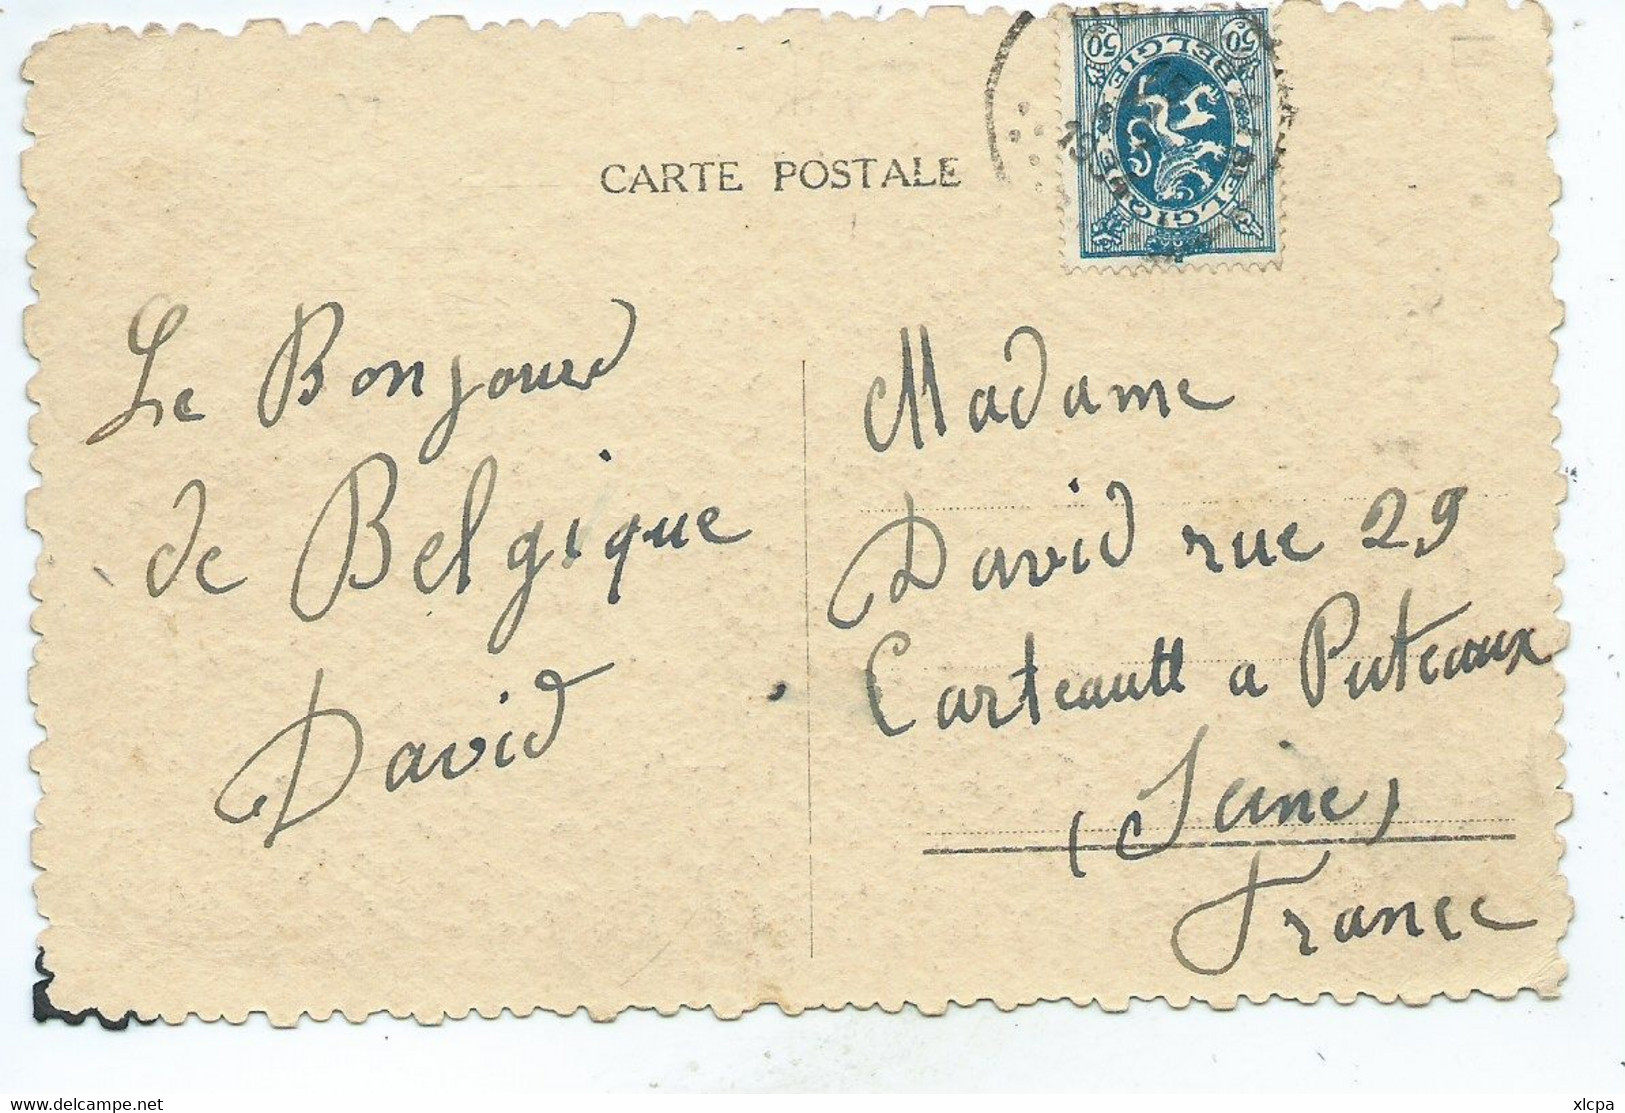 CARTE POSTALE
50 50
BELGIE BELGIQUE
Le Bonjour
de Belgique
David
Madame
David rue 29
Carteautt a Puteaux
(Seine)
France
www.delcampe.net
xlcpa